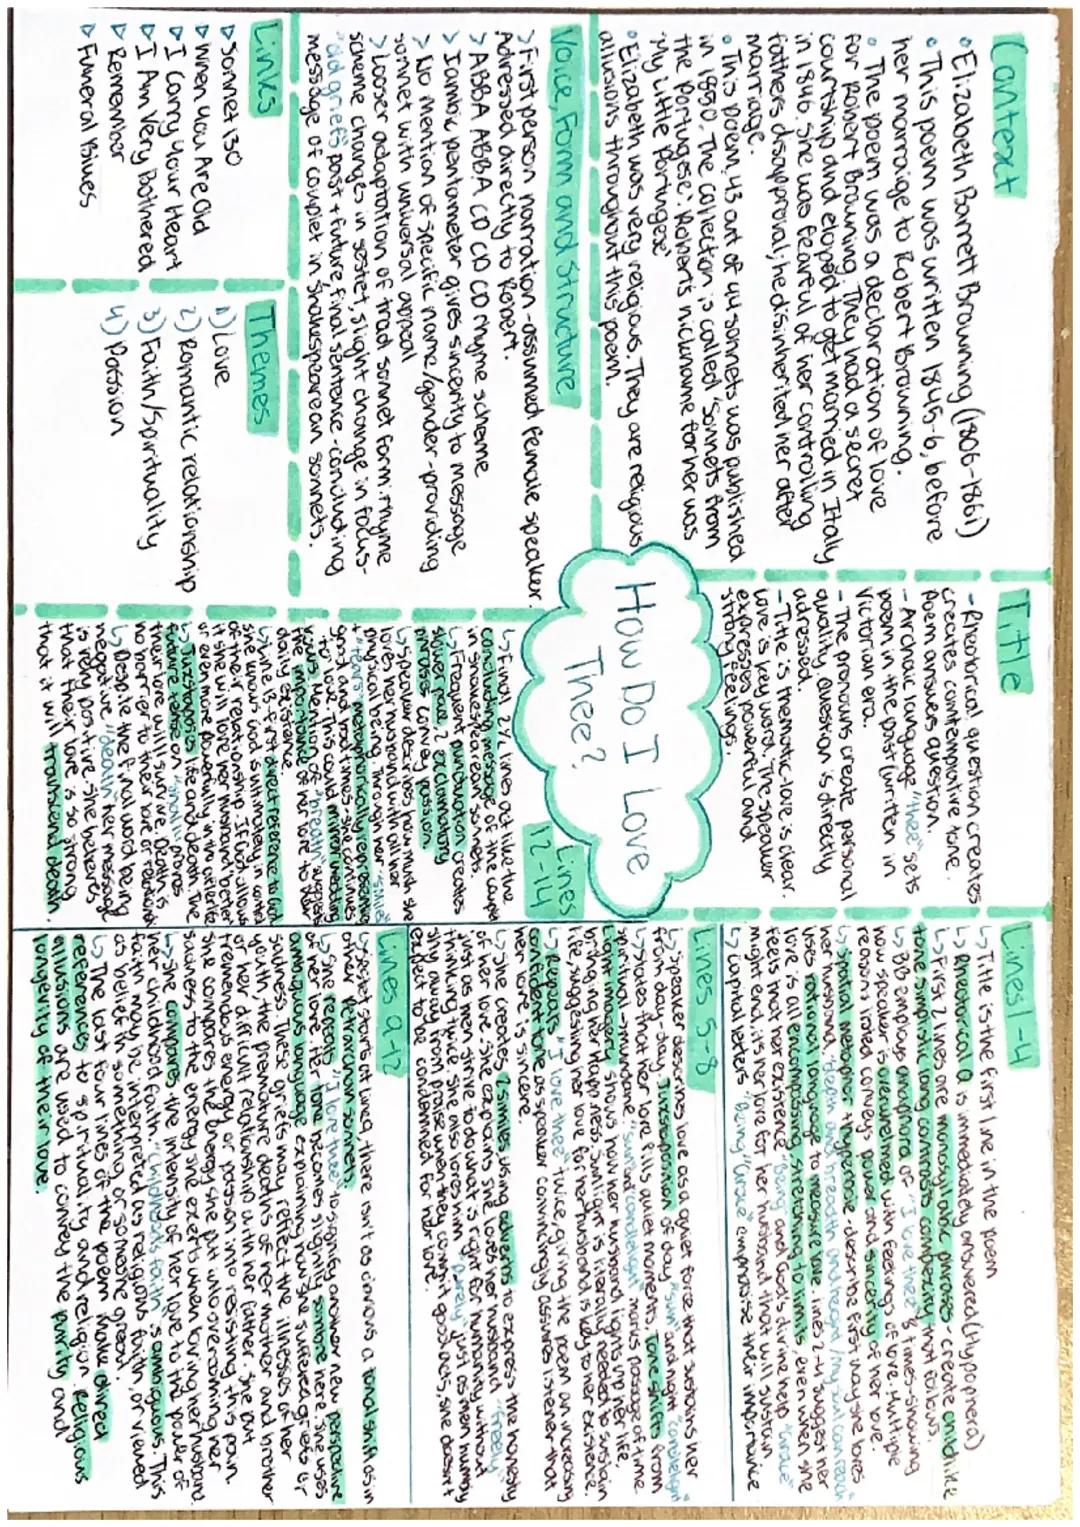 Context
• Elizabeth Barrett Browning (1806-1861)
• This poem was written 1845-6, before
her marriage to Robert Browning.
• The poem was a declaration of love
for Robert Browning. They had a secret
courtship and eloped to get married in Italy
in 1846. She was fearful of her controlling
fathers disapproval; he disinherited her after
marriage.
• This poem, 43 out of 44 sonnets was published
in 1850. The collection is called 'Sonnets from
the Portugese'. Robert's nickname for her was
'My Little Portugese'
• Elizabeth was very religious. They are religious
allusions throughout this poem.
Voice, Form and Structure
> First person narration - assumed female speaker.
Adressed directly to Robert.
> ABBA ABBA CD CD CD rhyme scheme
> Iambic pentameter gives sincerity to message
> No mention of specific name/gender - providing
sonnet with universal appeal
> Looser adaptation of trad sonnet form. rhyme
scheme changes in sestet, slight change in focus-
"old griefs" past + future, final sentence - concluding
message of couplet in Shakespearean sonnets.
Links
▷ Sonnet 130
▷ When You Are Old
▷ I Carry Your Heart
▷ I Am Very Bothered
▷ Remember
▷ Funeral Blues
Themes
1) Love
2) Romantic relationship
3) Faith/Spirituality
4) Passion
How Do I Love
Thee?
Title
- Rhetorical question creates
creates contemplative tone.
Poem answers question.
- Archaic language "thee" sets
poem in the past (written in
Victorian era.
- The pronouns create personal
quality, question is directly
adressed.
- Title is thematic - love is clear.
Love is key word. The speaker
expresses powerful and
strong feelings.
Lines
12-14
↳ Final 2 ½ lines act like the
concluding message of the couplet
in Shakespearean sonnets.
↳ Frequent punctuation creates
slower pace. 2 exclamatory
phrases convey passion.
↳ Speaker describes how much she
loves her husband with all her
physical being, through her "smiles"
+ "tears" metaphorically represents
good and bad times. She continues
to love. This could mirror wedding
vows. Mention of "breath" suggests
the importance of her love to her
daily existence.
↳ Line 13 - first direct reference to God
she knows God is ultimately in control
of their relationship. If God allows
it she will love her husband 'better'
or even more powerfully in the afterlife
↳ Juxtaposes life and death. The
future tense on "shall" proves
their love will survive. Death is
no barrier to their love or relationship
↳ Despite the final word being
negative, "death" her message
is really positive. She believes
that their love is so strong
that it will transcend death.
Lines 1-4
↳ Title is the first line in the poem
↳ Rhetorical Q is immediately answered (Hypophera)
↳ First 2 lines are monosyllabic phrases - create childlike
tone. Simplistic lang contrasts complexity that follows.
↳ BB employs anaphora of "I love thee" 8 times - showing
how speaker is overwhelmed with feelings of love. Multiple
reasons listed conveys power and sincerity of her love.
↳ Spatial metaphor + hyperbole - describe first way she loves
her husband, "depth and breadth and height / my soul can reach"
uses rational language to measure love. lines 2-4 suggest her
love is all encompassing, stretching to limits, even when she
feels that her existence "Being" and God's divine help "Grace"
might end, its her love for her husband that will sustain.
↳ Capital letters "Being" "Grace" emphasise their importance
Lines 5-8
↳ Speaker describes love as a quiet force that sustains her
from day - day. Juxtaposition of day "sun" and night "candlelight"
↳ States that her love fills quiet moments. Tone shifts from
spiritual - mundane. "sun and candlelight" marks passage of time.
Light imagery shows how her husband lights up her life,
bringing her happiness. Sunlight is literally needed to sustain
life, suggesting her love for her husband is key to her existence.
↳ Repeats "I love thee" twice, giving the poem an increasing
confident tone as speaker convincingly assures listener that
her love is sincere.
↳ She creates 2 similes using adverbs to express the honesty
of her love. She explains she loves her husband "freely"
just as men strive to do what is right for humanity without
thinking twice. She also loves him "purely" just as men humbly
shy away from praise when they commit good acts, she doesn't
expect to be condemned for her love.
Lines 9-12
↳ Sestet starts at line 9, there isn't as obvious a tonal shift as in
other Petrarchan sonnets.
↳ She repeats "I love thee" to signify another new perspective
of her love. Her tone becomes slightly sombre here. She uses
ambiguous language explaining how she suffered griefs or
sadness. These griefs may reflect the illnesses of her
youth, the premature deaths of her mother and brother
or her difficult relationship with her father. She put
tremendous energy or passion into resisting this pain.
She compares the energy she put into overcoming her
sadness to the energy she exerts when loving her husband.
↳ She compares the intensity of her love to the power of
her childhood faith. "Childhood's faith" is ambiguous. This
faith may be interpreted as religious faith, or viewed
as belief in something or someone great.
↳ The last four lines of the poem make direct
references to spirituality and religion. Religious
allusions are used to convey the purity and
longevity of their love.